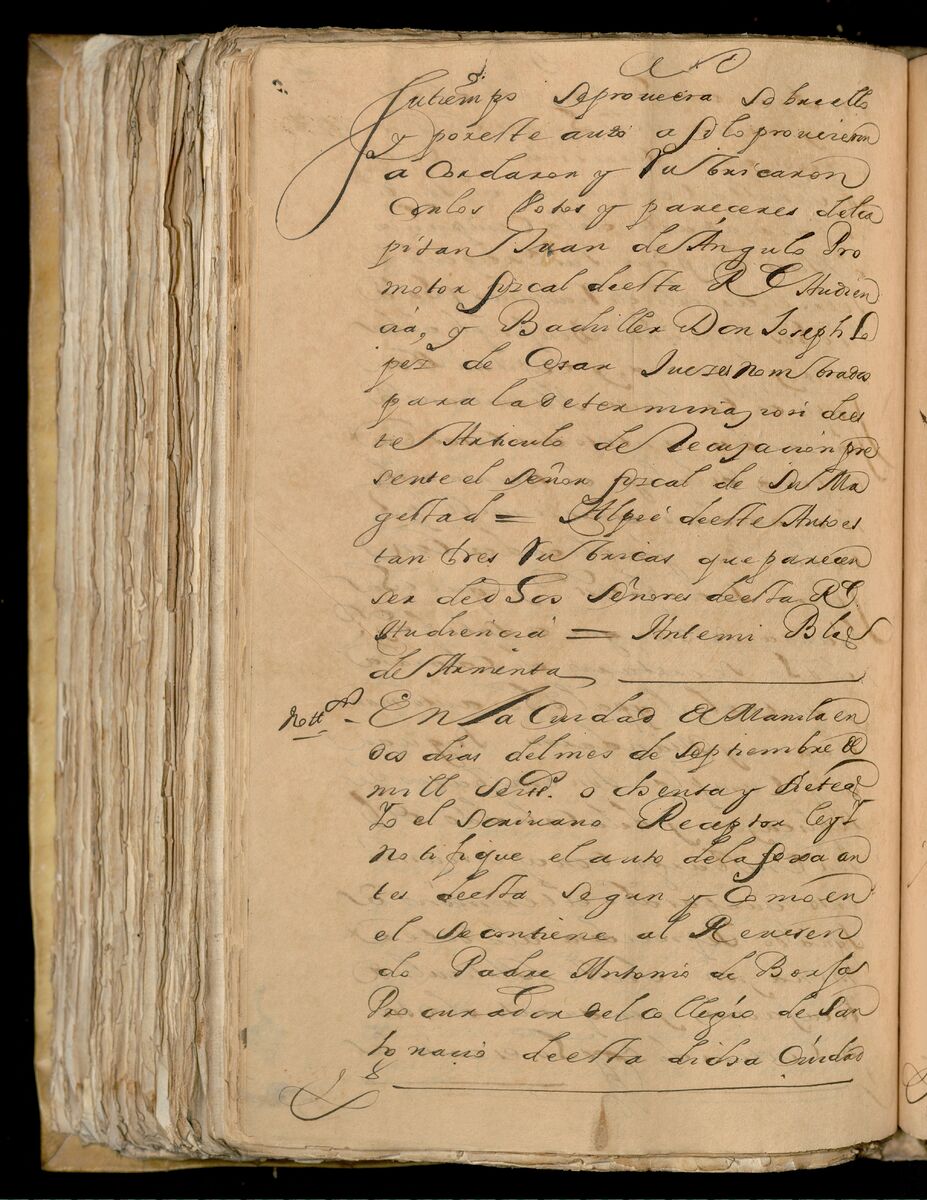 Sutiempo seproueera sobreello
y poreste auto asi lo proueieron
a Cordaron y Rubricaron
Conlos Votos y pareceres delca
pitan Juan de Angulo Pro
motor fiscal deesta Rl Audien
cia, y Bachiller Don Joseph Lo
pez de Cesar Juezes nombrados
para la determinazion dees
te Articulo de Recusacion pre
sente el Señor fiscal de Su Ma
gestad = Alpie deeste Auto es
tan tres Rubricas que parecen
ser de los Señores deesta Rl
Audiencia = Antemi Blas
de Armenta
Notton En la Ciudad de Manila en
dos dias del mes de Septiembre de
mill Seitos. ochenta y siete as
Yo el Scriuano Receptor ley y
notifique el auto dela foxa an
tes deesta Segun y Como en
el Secontiene al Reueren
do Padre Antonio de Borja
Procurador del collegio de San
Ygnacio deesta dicha Ciudad